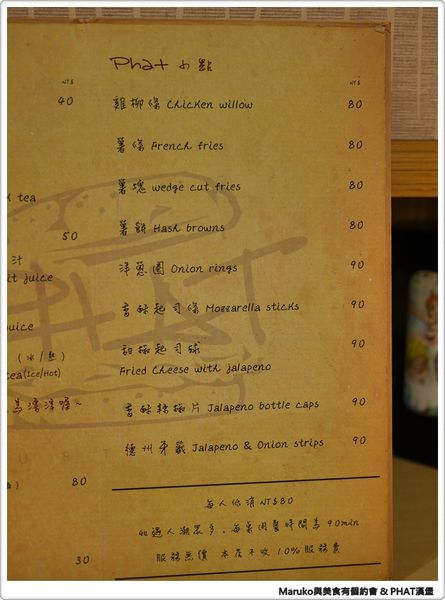 Phat 小點
NT$
NT$
40
雞柳條 Chicken willow 80
薯條 French fries 80
薯塊 wedge cut fries 80
tea
薯餅 Hash browns 80
50
汁
juice
洋蔥圈 Onion rings 90
香酥起司條 Mozzarella sticks 90
juice
甜椒起司球 90
(冰/熱)
Fried Cheese with jalapeno
tea(Ice/Hot)
香酥辣椒片 Jalapeno bottle caps 90
德州牙籤 Jalapeno & Onion strips 90
80
每人低消NT$80
如遇人潮眾多，每桌用餐時間為90min
30
服務無價 本店不收10%服務費
Maruko與美食有個約會 & PHAT漢堡